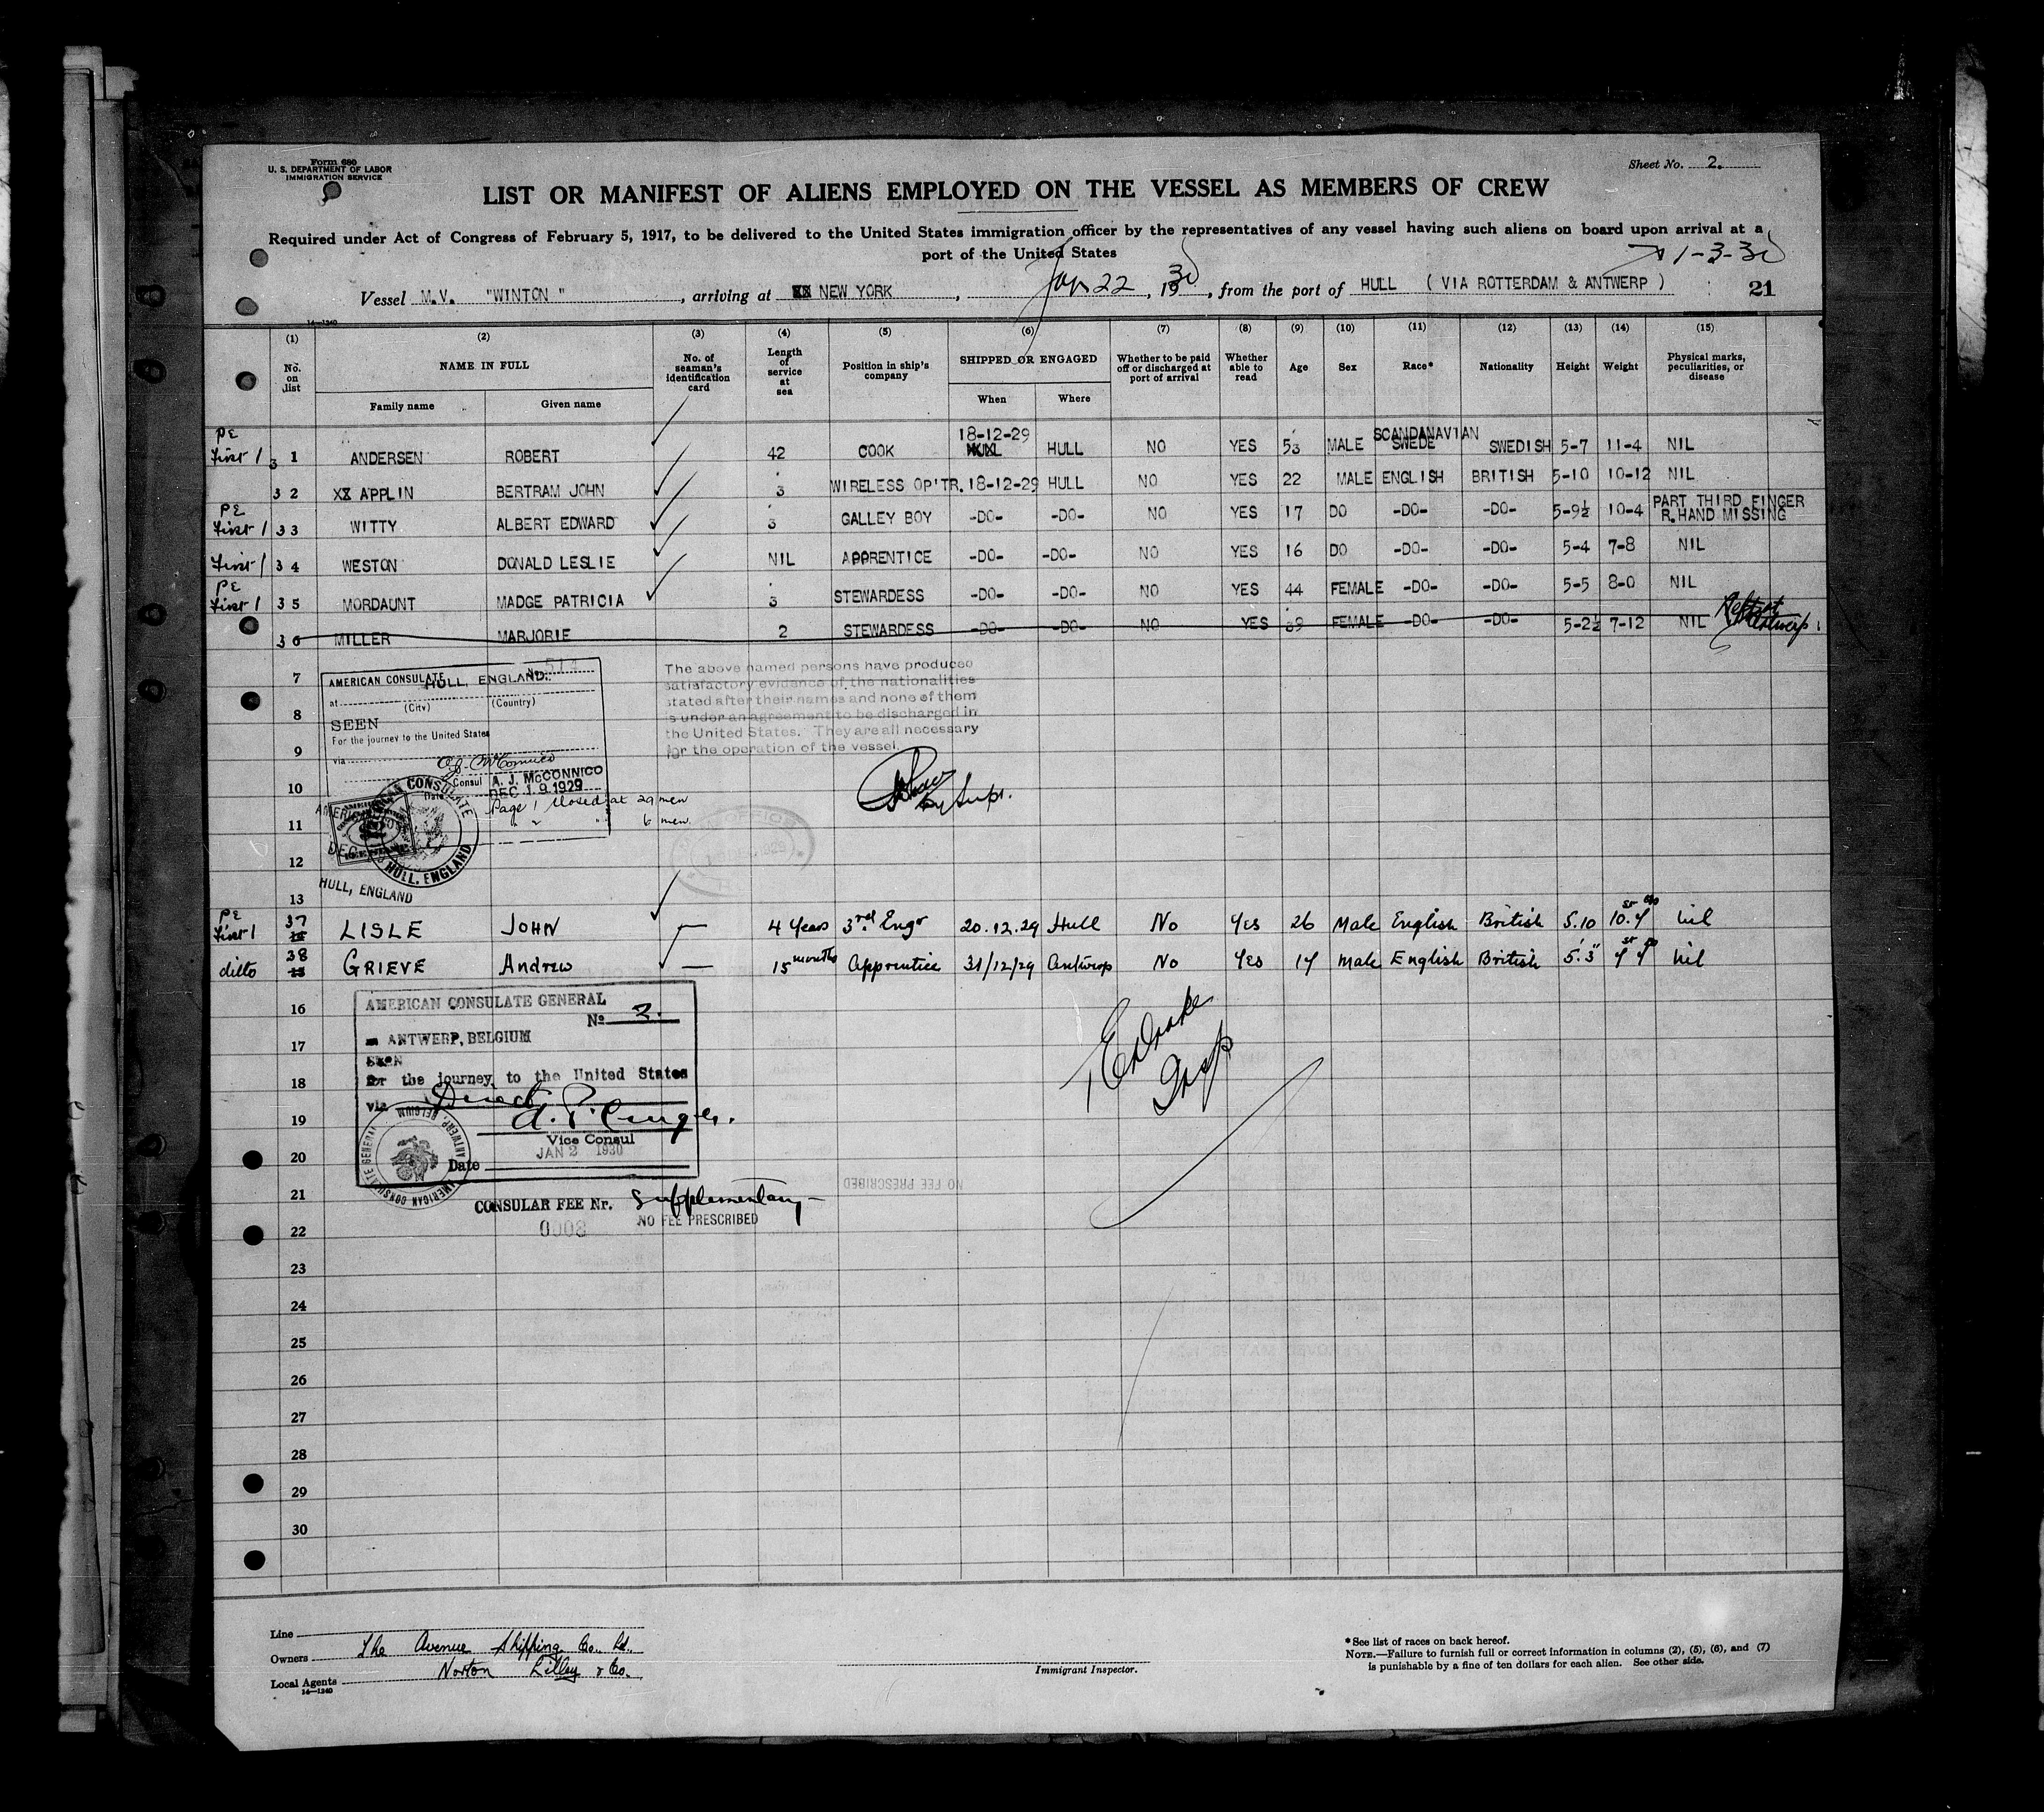 Form 680
U. S. DEPARTMENT OF LABOR
IMMIGRATION SERVICE
Sheet No. 2.
LIST OR MANIFEST OF ALIENS EMPLOYED ON THE VESSEL AS MEMBERS OF CREW
Required under Act of Congress of February 5, 1917, to be delivered to the United States immigration officer by the representatives of any vessel having such aliens on board upon arrival at a
port of the United States
1-3-30
Vessel M.V. "WINTON", arriving at NEW YORK, Jan 22, 1930, from the port of HULL (VIA ROTTERDAM & ANTWERP) 21
14—1240
(1) (2) (3) (4) (5) (6) (7) (8) (9) (10) (11) (12) (13) (14) (15)
No. on list NAME IN FULL No. of seaman's identification card Length of service at sea Position in ship's company SHIPPED OR ENGAGED Whether to be paid off or discharged at port of arrival Whether able to read Age Sex Race* Nationality Height Weight Physical marks, peculiarities, or disease
Family name Given name When Where
PE First 1 31 ANDERSEN ROBERT 42 COOK 18-12-29 HULL NO YES 53 MALE SCANDANAVIAN SWEDE SWEDISH 5-7 11-4 NIL
32 XX APPLIN BERTRAM JOHN 3 WIRELESS OP'TR. 18-12-29 HULL NO YES 22 MALE ENGLISH BRITISH 5-10 10-12 NIL
PE First 1 33 WITTY ALBERT EDWARD 3 GALLEY BOY -DO- -DO- NO YES 17 DO -DO- -DO- 5-9½ 10-4 PART THIRD FINGER R.HAND MISSING
First 1 34 WESTON DONALD LESLIE NIL APPRENTICE -DO- -DO- NO YES 16 DO -DO- -DO- 5-4 7-8 NIL
PE First 1 35 MORDAUNT MADGE PATRICIA 3 STEWARDESS -DO- -DO- NO YES 44 FEMALE -DO- -DO- 5-5 8-0 NIL
36 MILLER MARJORIE 2 STEWARDESS -DO- -DO- NO YES 39 FEMALE -DO- -DO- 5-2½ 7-12 NIL Left at Antwerp.
7
8
9
10
11
12
13
AMERICAN CONSULATE No. 514
at HULL, ENGLAND.
(City) (Country)
SEEN
For the journey to the United States
via
A. J. McConnico
Consul A. J. McCONNICO
Date DEC 19 1929
Page 1 closed at 29 men
" " " 6 men.
AMERICAN CONSULATE
HULL, ENGLAND
HULL, ENGLAND
The above named persons have produced
satisfactory evidence of the nationalities
stated after their names and none of them
is under an agreement to be discharged in
the United States. They are all necessary
for the operation of the vessel.
PE First 1 37 LISLE JOHN — 4 Years 3rd Engr 20.12.29 Hull No Yes 26 Male English British 5.10 10.7 nil
ditto 38 GRIEVE Andrew — 15 months Apprentice 31/12/29 Antwerp No Yes 17 Male English British 5'.3" 7 7 nil
16
17
18
19
20
21
22
23
24
25
26
27
28
29
30
AMERICAN CONSULATE GENERAL
No 2.
ANTWERP, BELGIUM
SEEN
For the journey to the United States
via Direct
Vice Consul
JAN 2 1930
Date
AMERICAN CONSULATE GENERAL ANTWERP, BELGIUM
CONSULAR FEE Nr. Supplementary
0008 NO FEE PRESCRIBED
NO FEE PRESCRIBED
Drake
Insp
Line
Owners The Avenue Shipping Co. Ld.
Local Agents Norton Lilley & Co.
14—1240
Immigrant Inspector.
*See list of races on back hereof.
NOTE.—Failure to furnish full or correct information in columns (2), (5), (6), and (7)
is punishable by a fine of ten dollars for each alien. See other side.